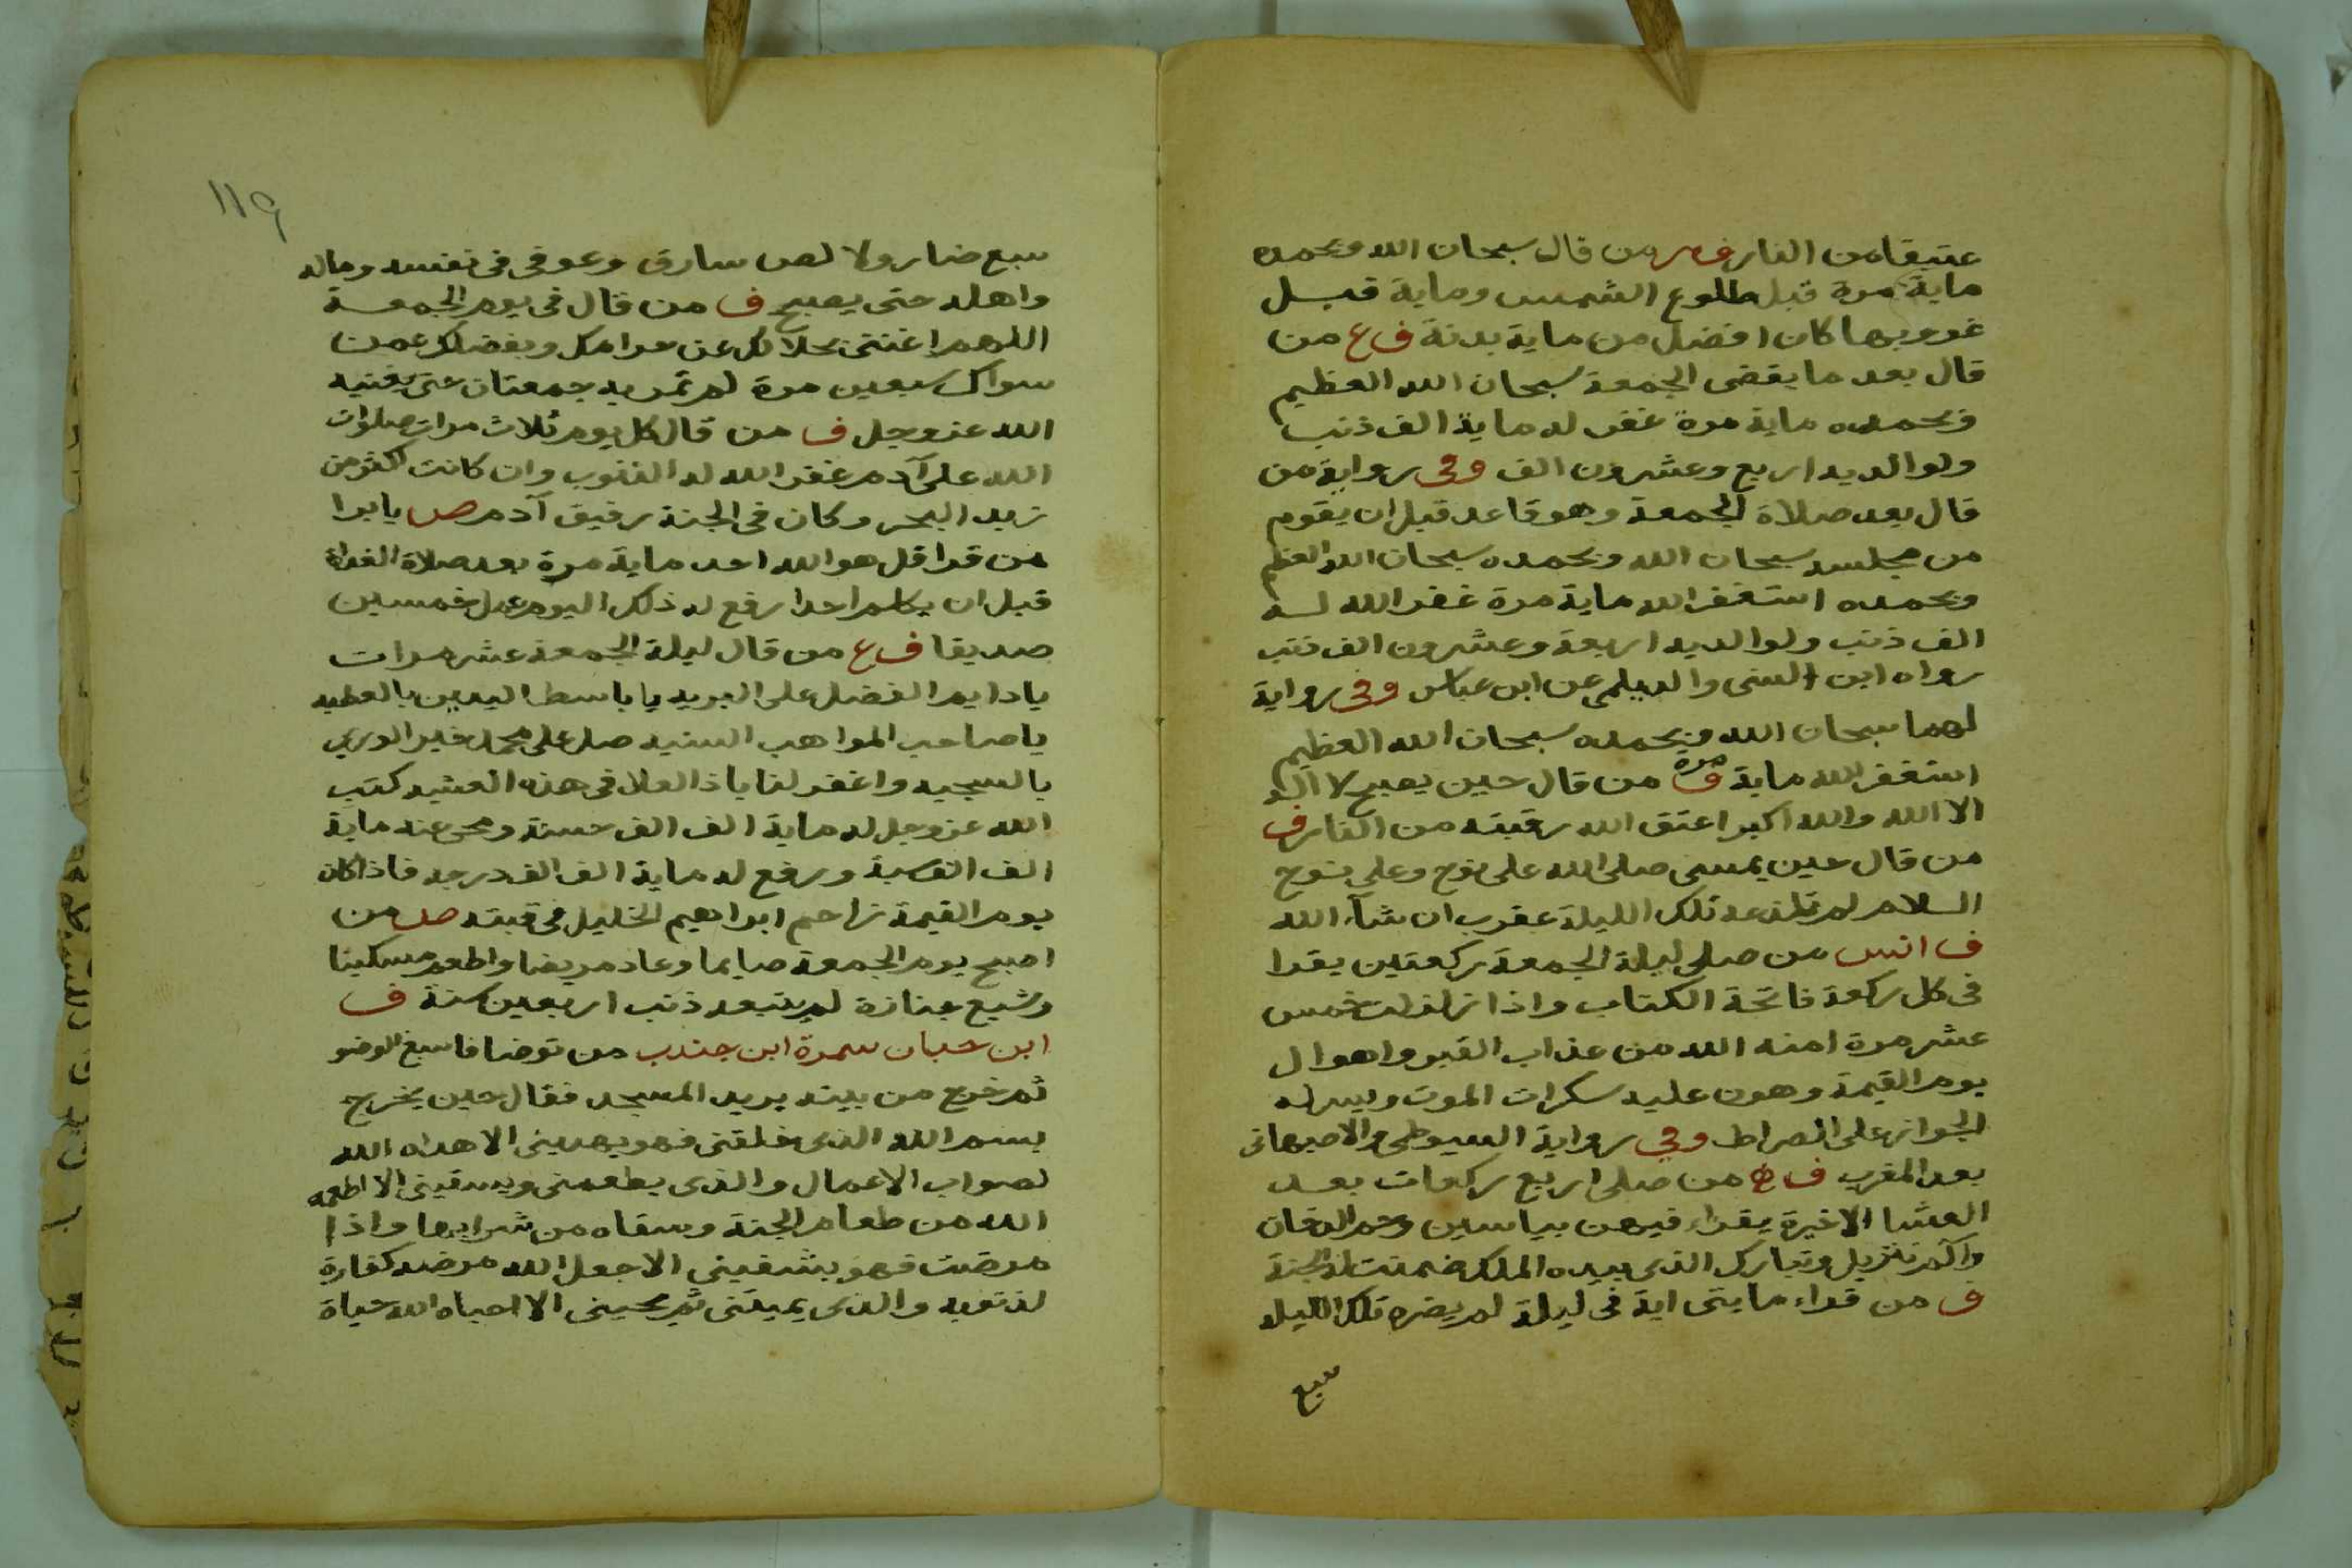 عتيقا من النار ف م من قال سبحان الله وبحمده
ماية مرة قبل طلوع الشمس وماية قبل
غروبها كان افضل من ماية بدنة ف ع من
قال بعد ما يقضى الجمعة سبحان الله العظيم
وبحمده ماية مرة غفر له ماية الف ذنب
ولوالديه اربع وعشرون الف وفى رواية من
قال بعد صلاة الجمعة وهو قاعد قبل ان يقوم
من مجلسه سبحان الله وبحمده سبحان الله العظيم
وبحمده استغفر الله ماية مرة غفر الله له
الف ذنب ولوالديه اربعة وعشرون الف ذنب
رواه ابن السنى والديلمى عن ابن عباس وفى رواية
لهما سبحان الله وبحمده سبحان الله العظيم
استغفر الله ماية مرة ف من قال حين يصبح لا اله
الا الله والله اكبر اعتق الله رقبته من النار ف
من قال حين يمسى صلى الله على نوح وعلى نوح
السلام لم تلدغه تلك الليلة عقرب ان شآء الله
ف انس من صلى ليلة الجمعة ركعتين يقرا
فى كل ركعة فاتحة الكتاب واذا زلزلت خمس
عشر مرة امنه الله من عذاب القبر واهوال
يوم القيمة وهون عليه سكرات الموت ويسر له
الجواز على الصراط وفى رواية السيوطى والاصبهانى
بعد المغرب ف من صلى اربع ركعات بعد
العشا الاخيرة يقراء فيهن بياسين وحم الدخان
والم تنزيل وتبارك الذى بيده الملك ضمنت له الجنة
ف من قراء مايتى اية فى ليلة لم يضره تلك الليله
سبع
١١٩
سبع ضار ولا لص سارق وعوفى فى نفسه وماله
واهله حتى يصبح ف من قال فى يوم الجمعة
اللهم اغننى بحلالك عن حرامك وبفضلك عمن
سواك سبعين مرة لم تمر به جمعتان حتى يغنيه
الله عز وجل ف من قال كل يوم ثلاث مرات صلوات
الله على آدم غفر الله له الذنوب وان كانت اكثر من
زبد البحر وكان فى الجنة رفيق آدم ص يا برا
من قرا قل هو الله احد ماية مرة بعد صلاة الغداة
قبل ان يكلم احدا رفع له ذلك اليوم عمل خمسين
صديقا ف ع من قال ليلة الجمعة عشر مرات
يا دايم الفضل على البريه يا باسط اليدين بالعطيه
يا صاحب المواهب السنيه صل على محمد خير الورى
بالسجيه واغفر لنا يا ذا العلا فى هذه العشيه كتب
الله عز وجل له ماية الف الف حسنة ومحى عنه ماية
الف الف سية ورفع له ماية الف الف درجه فاذا كان
يوم القيمة زاحم ابراهيم الخليل فى قبته ص من
اصبح يوم الجمعة صايما وعاد مريضا واطعم مسكينا
وشيع جنازة لم يتبعه ذنب اربعين سنة ف
ابن حبان سمرة ابن جندب من توضا فاسبغ الوضو
ثم خرج من بيته يريد المسجد فقال حين يخرج
بسم الله الذى خلقنى فهو يهدينى الا هداه الله
لصواب الاعمال والذى يطعمنى ويسقينى الا اطعمه
الله من طعام الجنة وسقاه من شرابها واذا
مرضت فهو يشفينى الا جعل الله مرضه كفارة
لذنوبه والذى يميتنى ثم يحيينى الا احياه الله حياة